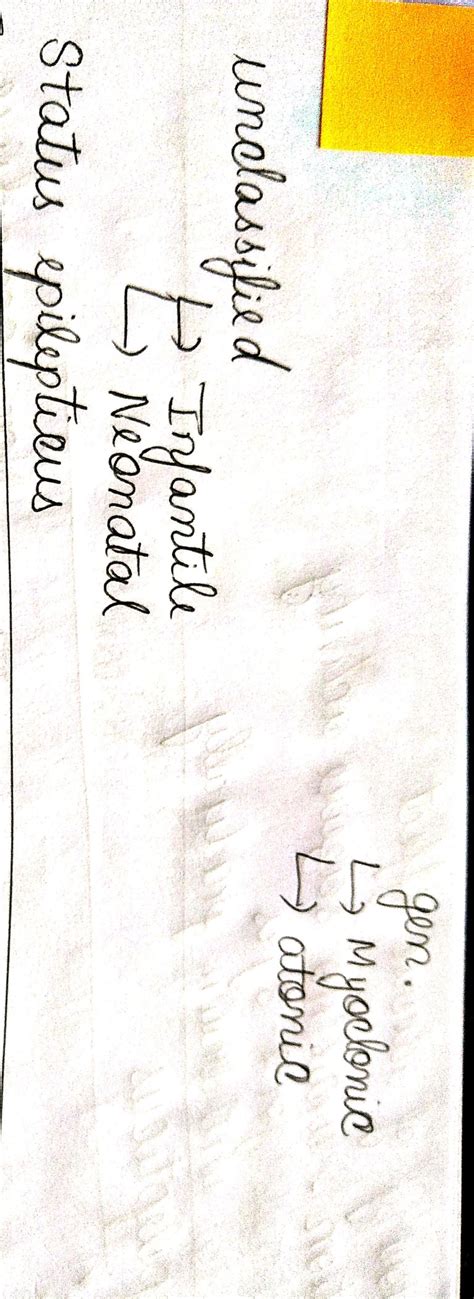 gen.
↳ Myoclonic
↳ atonic
unclassified
↳ Infantile
↳ Neonatal
Status epilepticus